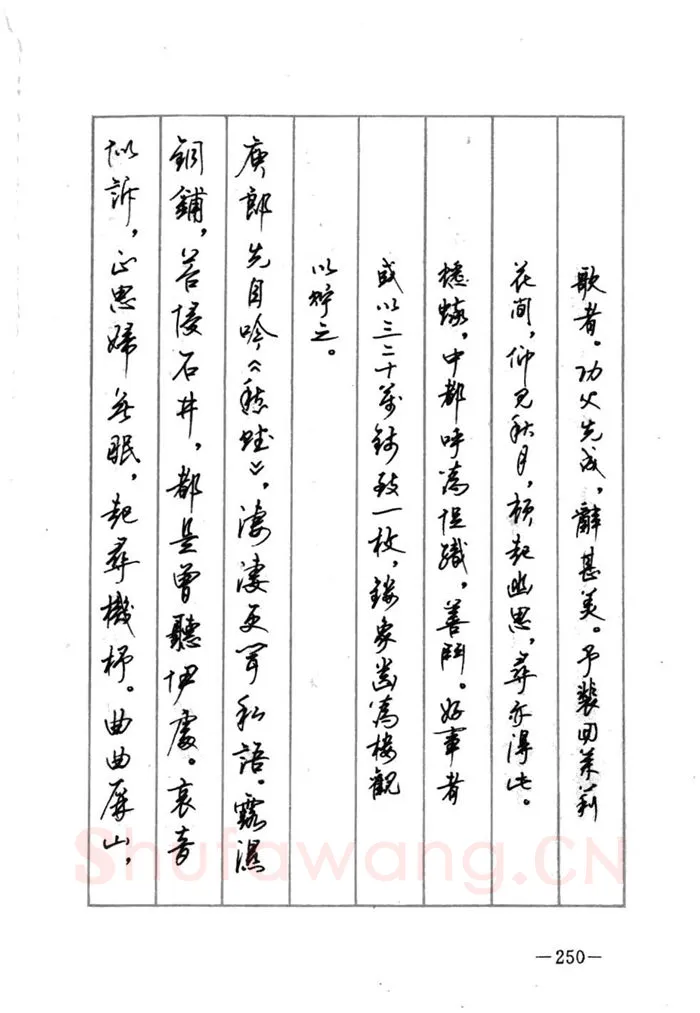 歌者。功父先成，辭甚美。予裴回茉莉
花間，仰見秋月，頓起幽思，尋亦得此。
蟋蟀，中都呼為促織，善鬥。好事者
或以三二十萬錢致一枚，鏤象齒為樓觀
以貯之。
庾郎先自吟《愁賦》，淒淒更聞私語。露濕
銅鋪，苔侵石井，都是曾聽伊處。哀音
似訴，正思婦無眠，起尋機杼。曲曲屏山，
Shufawang.CN
—250—